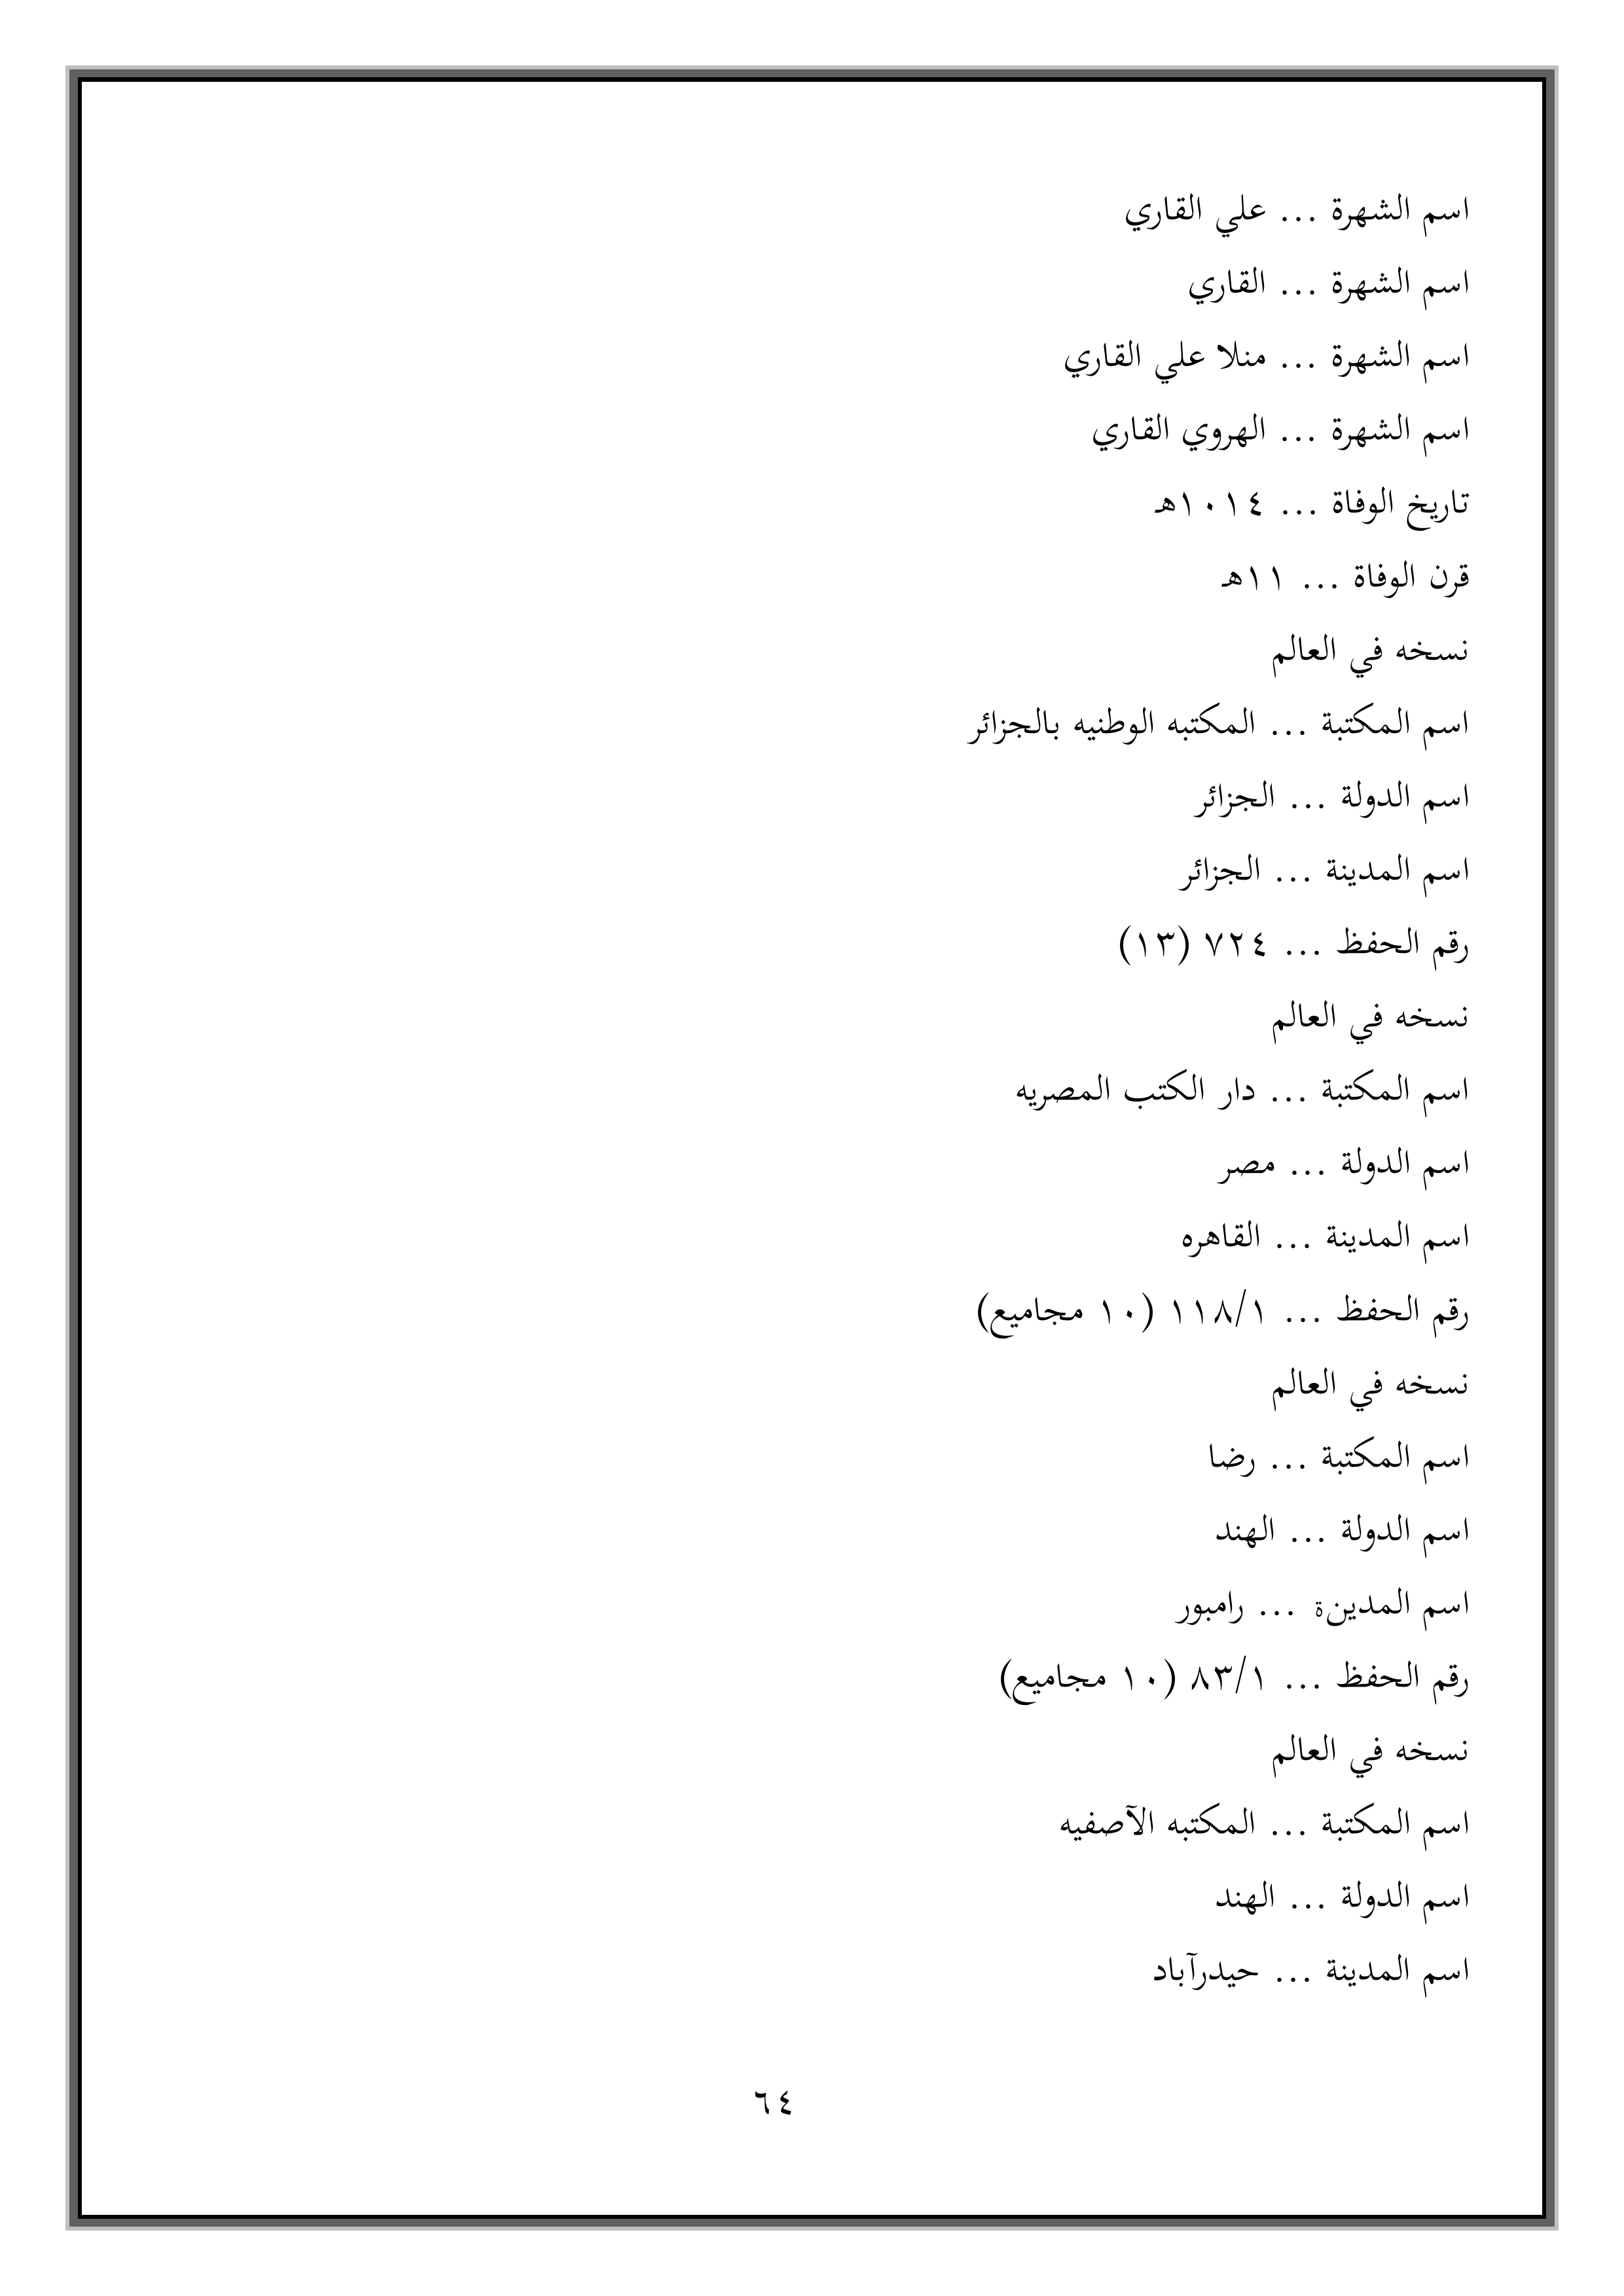 اسم الشهرة ... علي القاري
اسم الشهرة ... القاري
اسم الشهرة ... منلا علي القاري
اسم الشهرة ... الهروي القاري
تاريخ الوفاة ... ١٠١٤هـ
قرن الوفاة ... ١١هـ
نسخه في العالم
اسم المكتبة ... المكتبه الوطنيه بالجزائر
اسم الدولة ... الجزائر
اسم المدينة ... الجزائر
رقم الحفظ ... ٧٢٤ (١٣)
نسخه في العالم
اسم المكتبة ... دار الكتب المصريه
اسم الدولة ... مصر
اسم المدينة ... القاهره
رقم الحفظ ... ١١٨/١ (١٠ مجاميع)
نسخه في العالم
اسم المكتبة ... رضا
اسم الدولة ... الهند
اسم المدينة ... رامبور
رقم الحفظ ... ٨٣/١ (١٠ مجاميع)
نسخه في العالم
اسم المكتبة ... المكتبه الآصفيه
اسم الدولة ... الهند
اسم المدينة ... حيدرآباد
٦٤